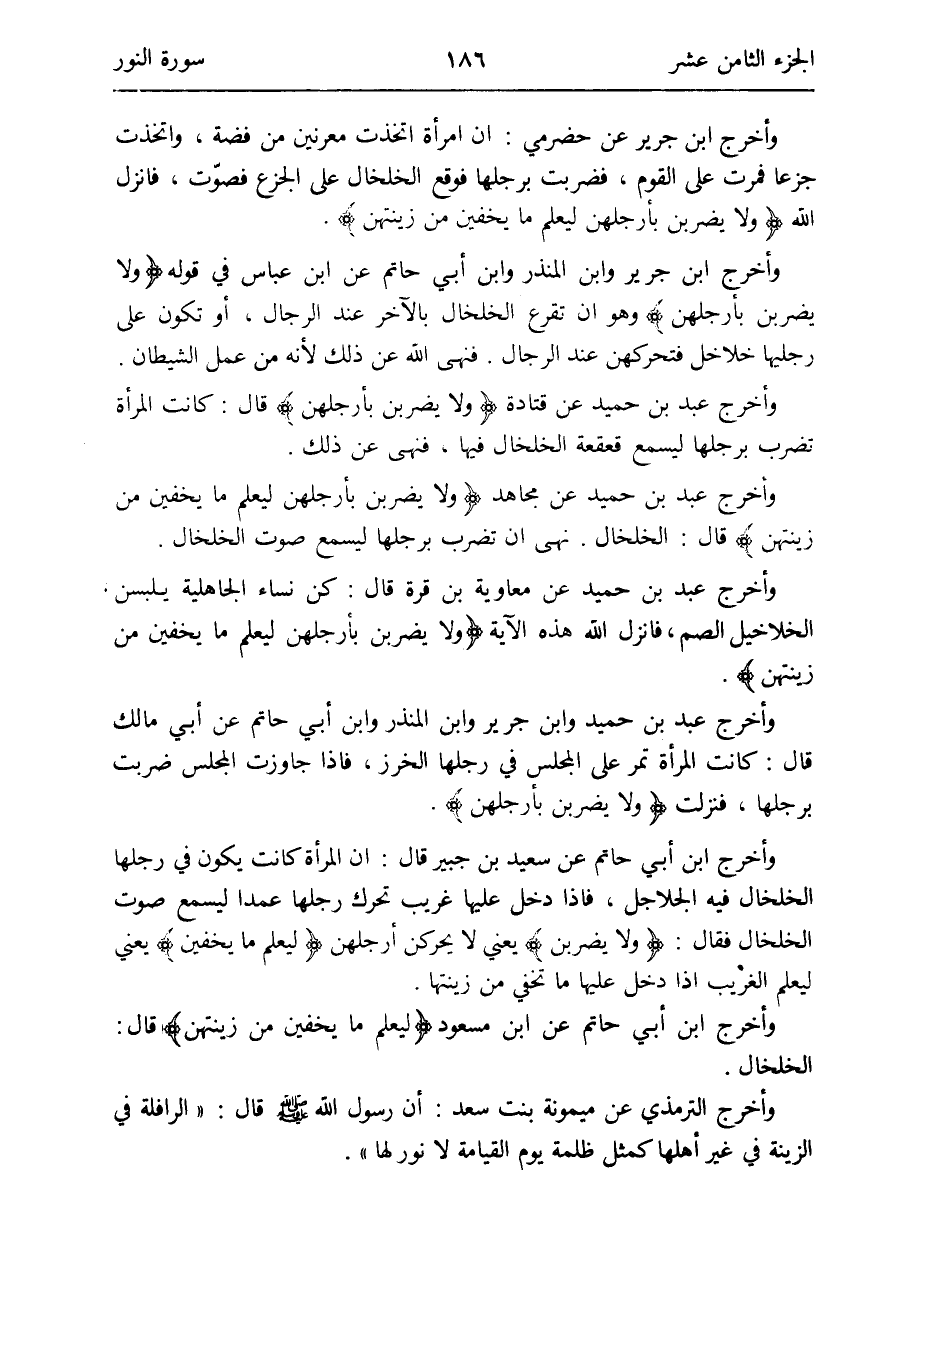 الجزء الثامن عشر ١٨٦ سورة النور
وأخرج ابن جرير عن حضرمي : ان امرأة اتخذت معرنين من فضة ، واتخذت
جزعا فمرت على القوم ، فضربت برجلها فوقع الخلخال على الجزع فصوّت ، فانزل
الله ﴿ ولا يضربن بأرجلهن ليعلم ما يخفين من زينتهن ﴾ .
وأخرج ابن جرير وابن المنذر وابن أبي حاتم عن ابن عباس في قوله ﴿ولا
يضربن بأرجلهن ﴾ وهو ان تقرع الخلخال بالآخر عند الرجال ، أو تكون على
رجليها خلاخل فتحركهن عند الرجال . فنهى الله عن ذلك لأنه من عمل الشيطان .
وأخرج عبد بن حميد عن قتادة ﴿ ولا يضربن بأرجلهن ﴾ قال : كانت المرأة
تضرب برجلها ليسمع قعقعة الخلخال فيها ، فنهى عن ذلك .
وأخرج عبد بن حميد عن مجاهد ﴿ ولا يضربن بأرجلهن ليعلم ما يخفين من
زينتهن ﴾ قال : الخلخال . نهى ان تضرب برجلها ليسمع صوت الخلخال .
وأخرج عبد بن حميد عن معاوية بن قرة قال : كن نساء الجاهلية يلبسن
الخلاخيل الصم ، فانزل الله هذه الآية ﴿ولا يضربن بأرجلهن ليعلم ما يخفين من
زينتهن ﴾ .
وأخرج عبد بن حميد وابن جرير وابن المنذر وابن أبي حاتم عن أبي مالك
قال : كانت المرأة تمر على المجلس في رجلها الخرز ، فاذا جاوزت المجلس ضربت
برجلها ، فنزلت ﴿ ولا يضربن بأرجلهن ﴾ .
وأخرج ابن أبي حاتم عن سعيد بن جبير قال : ان المرأة كانت يكون في رجلها
الخلخال فيه الجلاجل ، فاذا دخل عليها غريب تحرك رجلها عمدا ليسمع صوت
الخلخال فقال : ﴿ ولا يضربن ﴾ يعني لا يحركن أرجلهن ﴿ ليعلم ما يخفين ﴾ يعني
ليعلم الغريب اذا دخل عليها ما تخفي من زينتها .
وأخرج ابن أبي حاتم عن ابن مسعود ﴿ليعلم ما يخفين من زينتهن﴾ قال :
الخلخال .
وأخرج الترمذي عن ميمونة بنت سعد : أن رسول الله ﷺ قال : « الرافلة في
الزينة في غير أهلها كمثل ظلمة يوم القيامة لا نور لها » .